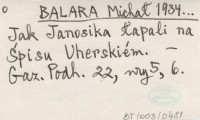 BALARA Michał 1934...
Jak Janosika łapali na
Spisu Uherskiém. —
Gaz. Podh. 22, nry 5, 6.
BT/003/0481